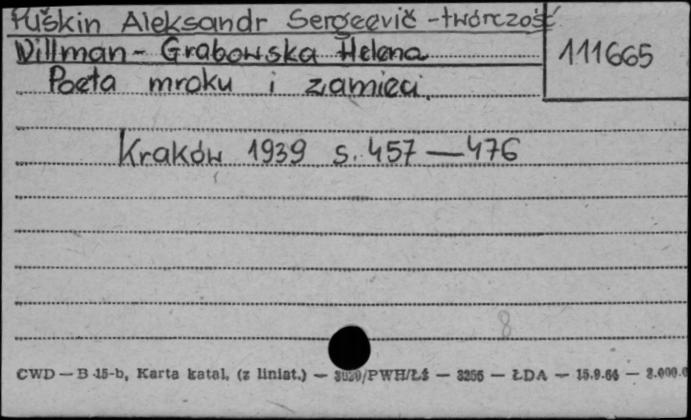 Puškin Aleksandr Sergeevič - twórczość
Willman - Grabowska Helena
111665
Poeta mroku i zamieci.
Kraków 1939 s. 457 — 476
8
CWD — B 15-b, Karta katal. (z liniat.) — /PWH/Łż — 3256 — ŁDA — 15.9.66 —